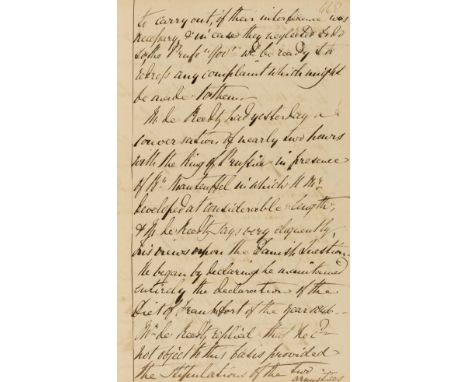 to carry out, if their interference was
necessary, & in case they neglected to do
so the Prussn Govt wd be ready to
redress any complaint which might
be made to them.
M. de Reedtz had yesterday a
conversation of nearly two hours
with the King of Prussia in presence
of Bn Manteuffel in which H My
developed at considerable length,
& M. de Reedtz says very eloquently,
his views upon the Danish Question
He began by declaring he maintained
entirely the declaration of the
Diet of Frankfort of the year 1846.
Mr de Reedtz replied that he did
not object to that basis provided
the stipulations of the two
armistices